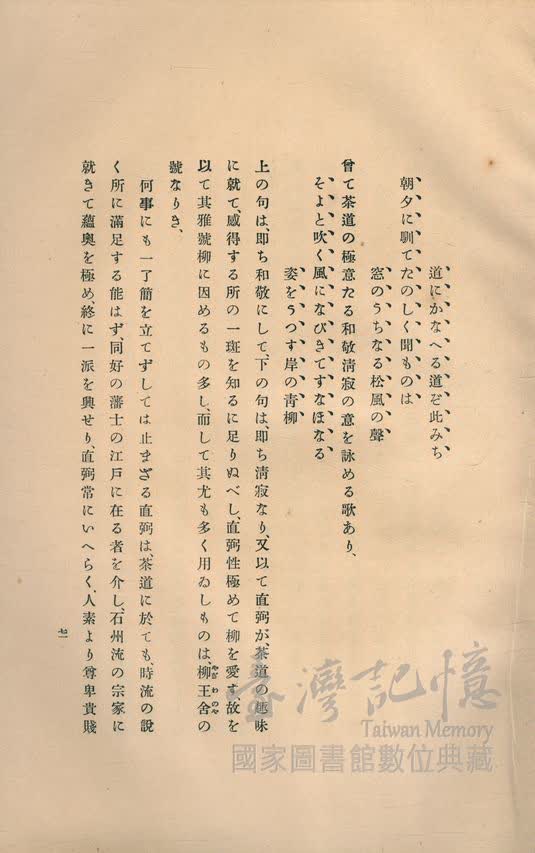 道にかなへる道ぞ此みち
朝夕に馴てたのしく聞ものは
窓のうちなる松風の聲
曾て茶道の極意たる和敬淸寂の意を詠める歌あり、
そよと吹く風になびきてすなほなる
姿をうつす岸の靑柳
上の句は、卽ち和敬にして、下の句は、卽ち淸寂なり、又以て直弼が、茶道の趣味
に就て、感得する所の一斑を知るに足りぬべし、直弼性極めて柳を愛す故を
以て其雅號柳に因めるもの多し、而して其尤も多く用ゐしものは、柳王舍の
やぎわのや
號なりき、
何事にも一了簡を立てずしては止まざる直弼は、茶道に於ても、時流の說
く所に滿足する能はず、同好の藩士の江戶に在る者を介し、石州流の宗家に
就きて蘊奧を極め、終に一派を興せり、直弼常にいへらく、人素より尊卑貴賤
七一
臺灣記憶
Taiwan Memory
國家圖書館數位典藏